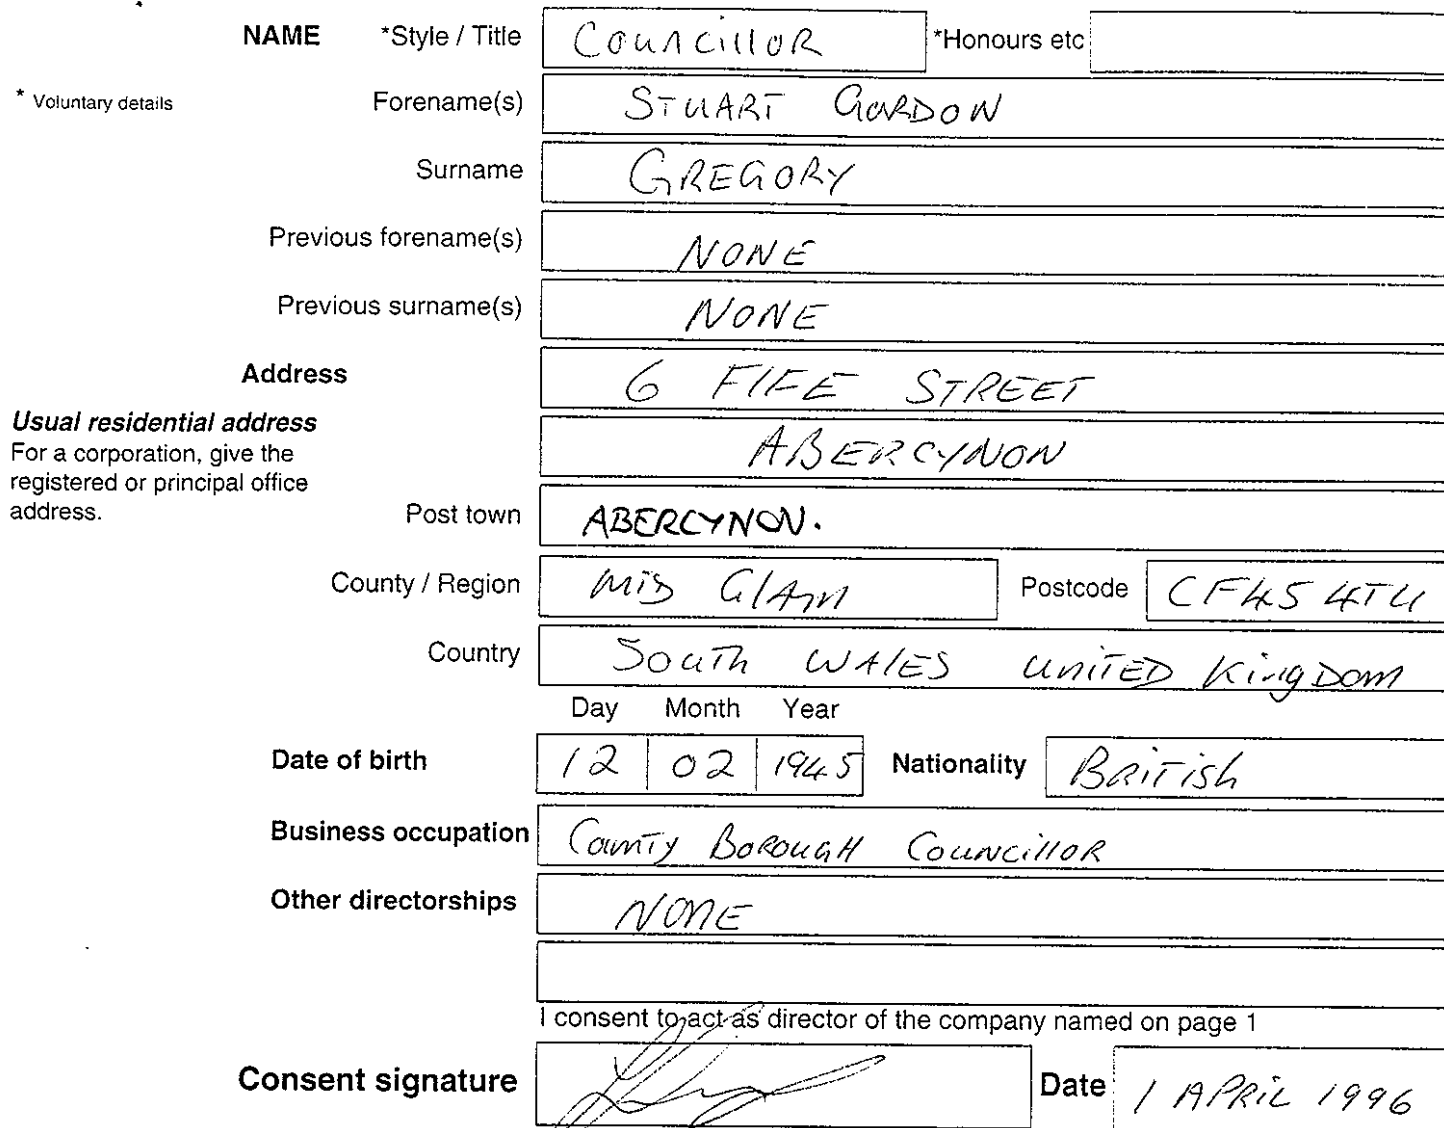 NAME *Style / Title Councillor *Honours etc
* Voluntary details Forename(s) STUART GORDON
Surname GREGORY
Previous forename(s) NONE
Previous surname(s) NONE
Address 6 FIFE STREET
Usual residential address
For a corporation, give the
registered or principal office
address.
ABERCYNON
Post town ABERCYNON.
County / Region MID GLAM Postcode CF45 4TU
Country SOUTH WALES UNITED KingDom
Day Month Year
Date of birth 12 02 1945 Nationality BRITISh
Business occupation County BOROUGH COUNCILLOR
Other directorships NONE
I consent to act as director of the company named on page 1
Consent signature Date 1 APRIL 1996